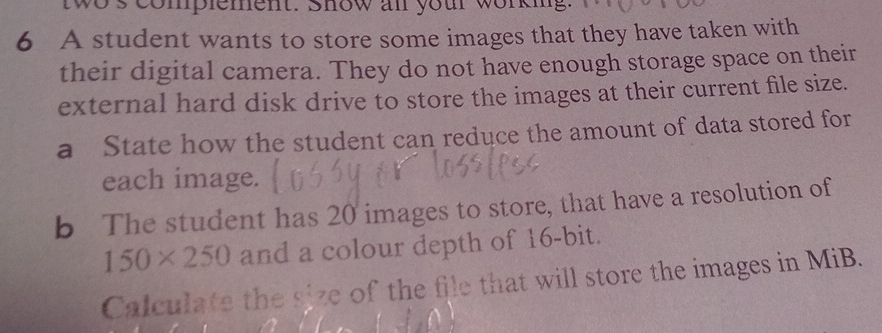 two's complement. Show all your working.
6 A student wants to store some images that they have taken with
their digital camera. They do not have enough storage space on their
external hard disk drive to store the images at their current file size.
a State how the student can reduce the amount of data stored for
each image. lossy or lossless
b The student has 20 images to store, that have a resolution of
150 × 250 and a colour depth of 16-bit.
Calculate the size of the file that will store the images in MiB.